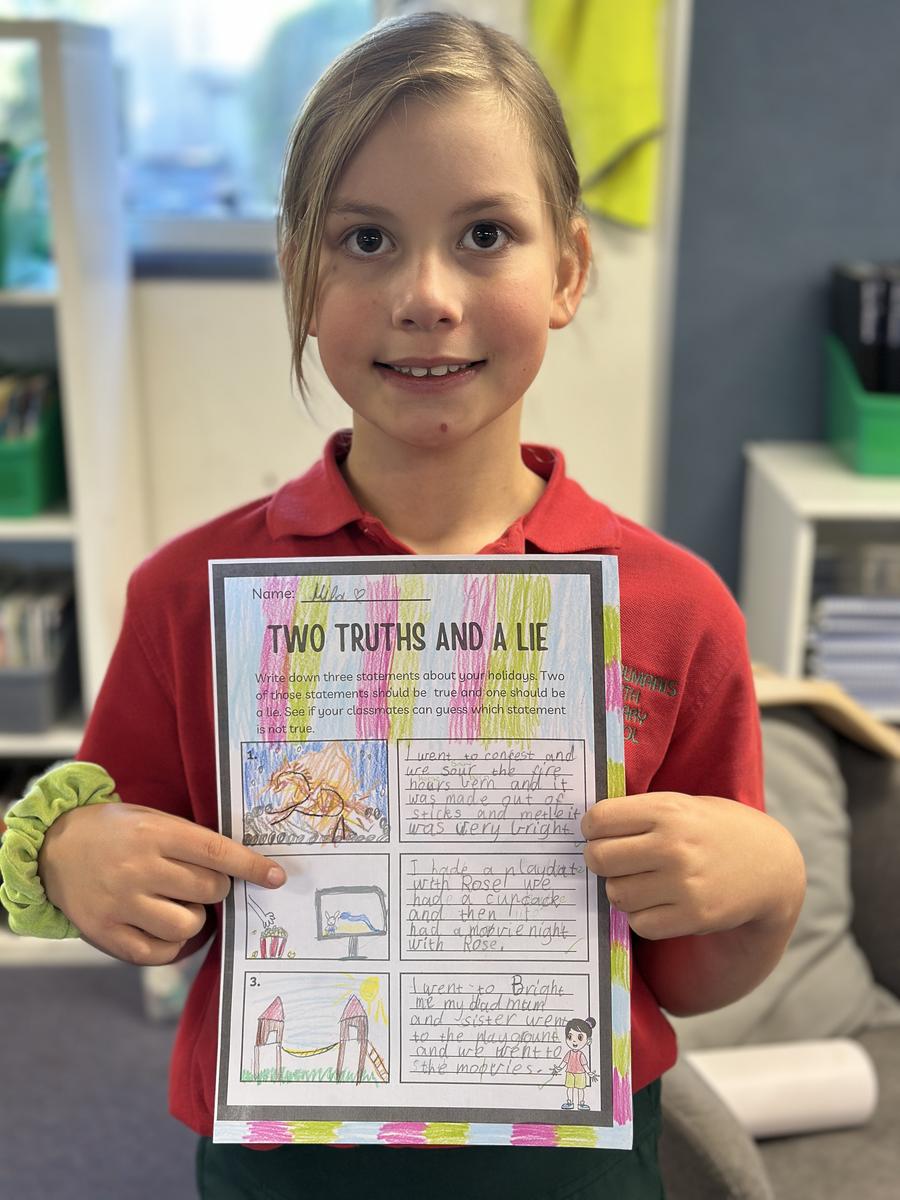 Name: Mila ♡
TWO TRUTHS AND A LIE
Write down three statements about your holidays. Two
of those statements should be true and one should be
a lie. See if your classmates can guess which statement
is not true.
1.
I went to confest and
we sour the fire
hours bern and it
was made out of
sticks and metle it
was very bright
I hade a playdate
with Rose! we
had a cupcace
and then
had a moprie night
with Rose.
3.
I went to Bright
me my dad mum
and sister went
to the playground
and we went to
the mopries.
TH